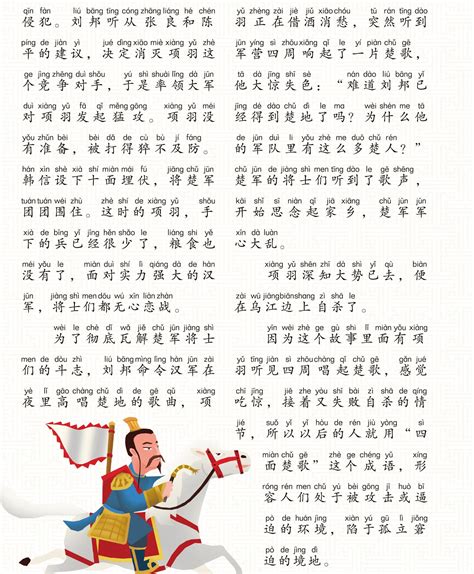 qīn fàn liú bāng tīng cóng zhāng liáng hé chén
侵犯。刘邦听从张良和陈
píng de jiàn yì jué dìng xiāo miè xiàng yǔ zhè
平的建议，决定消灭项羽这
ge jìng zhēng duì shǒu yú shì shuài lǐng dà jūn
个竞争对手，于是率领大军
duì xiàng yǔ fā qǐ měng gōng xiàng yǔ méi
对项羽发起猛攻。项羽没
yǒu zhǔn bèi bèi dǎ de cù bù jí fáng
有准备，被打得猝不及防。
hán xìn shè xià shí miàn mái fú jiāng chǔ jūn
韩信设下十面埋伏，将楚军
tuán tuán wéi zhù zhè shí de xiàng yǔ shǒu
团团围住。这时的项羽，手
xià de bīng yǐ jīng hěn shǎo le liáng shí yě
下的兵已经很少了，粮食也
méi yǒu le miàn duì shí lì qiáng dà de hàn
没有了，面对实力强大的汉
jūn jiàng shì men dōu wú xīn liàn zhàn
军，将士们都无心恋战。
wèi le chè dǐ wǎ jiě chǔ jūn jiàng shì
为了彻底瓦解楚军将士
men de dòu zhì liú bāng mìng lìng hàn jūn zài
们的斗志，刘邦命令汉军在
yè lǐ gāo chàng chǔ dì de gē qǔ xiàng
夜里高唱楚地的歌曲，项
yǔ zhèng zài jiè jiǔ xiāo chóu tū rán tīng dào
羽正在借酒消愁，突然听到
jūn yíng sì zhōu xiǎng qǐ le yí piàn chǔ gē
军营四周响起了一片楚歌，
tā dà jīng shī sè nán dào liú bāng yǐ
他大惊失色：“难道刘邦已
jīng dé dào chǔ dì le ma wèi shén me tā
经得到楚地了吗？为什么他
de jūn duì lǐ yǒu zhè me duō chǔ rén
的军队里有这么多楚人？”
chǔ jūn de jiàng shì men tīng dào le gē shēng
楚军的将士们听到了歌声，
kāi shǐ sī niàn qǐ jiā xiāng chǔ jūn jūn
开始思念起家乡，楚军军
xīn dà luàn
心大乱。
xiàng yǔ shēn zhī dà shì yǐ qù biàn
项羽深知大势已去，便
zài wū jiāng biān shang zì shā le
在乌江边上自杀了。
yīn wèi zhè ge gù shi lǐ miàn yǒu xiàng
因为这个故事里面有项
yǔ tīng jiàn sì zhōu chàng qǐ chǔ gē gǎn jué
羽听见四周唱起楚歌，感觉
chī jīng jiē zhe yòu shī bài zì shā de qíng
吃惊，接着又失败自杀的情
jié suǒ yǐ yǐ hòu de rén jiù yòng sì
节，所以以后的人就用“四
miàn chǔ gē zhè ge chéng yǔ xíng
面楚歌”这个成语，形
róng rén men chǔ yú bèi gōng jī huò bī
容人们处于被攻击或逼
pò de huán jìng xiàn yú gū lì jiǒng
迫的环境，陷于孤立窘
pò de jìng dì
迫的境地。